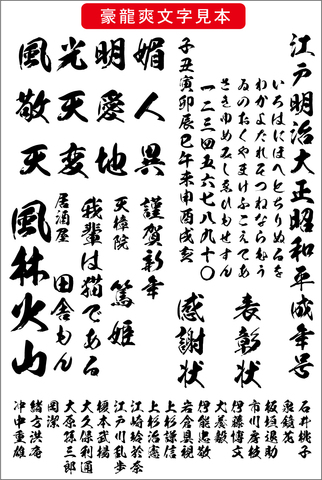 豪龍爽文字見本
江戸明治大正昭和平成年号
いろはにほへとちりぬるを
わかよたれそつねならむう
ゐのおくやまけふこえてあ
さきゆめみしゑひもせすん
一二三四五六七八九十〇
子丑寅卯辰巳午未申酉戌亥
表彰状
感謝状
媚人異
明愛地
光天変
風敬天
謹賀新年
天樟院 篤姫
我輩は猫である
居酒屋 田舎もん
風林火山
石井桃子
泉鏡花
板垣退助
市川房枝
伊藤博文
犬養毅
伊能忠敬
岩倉具視
上杉謙信
上杉治憲
江崎玲於奈
江戸川乱歩
榎本武揚
大久保利通
大原孫三郎
岡潔
緒方洪庵
沖中重雄